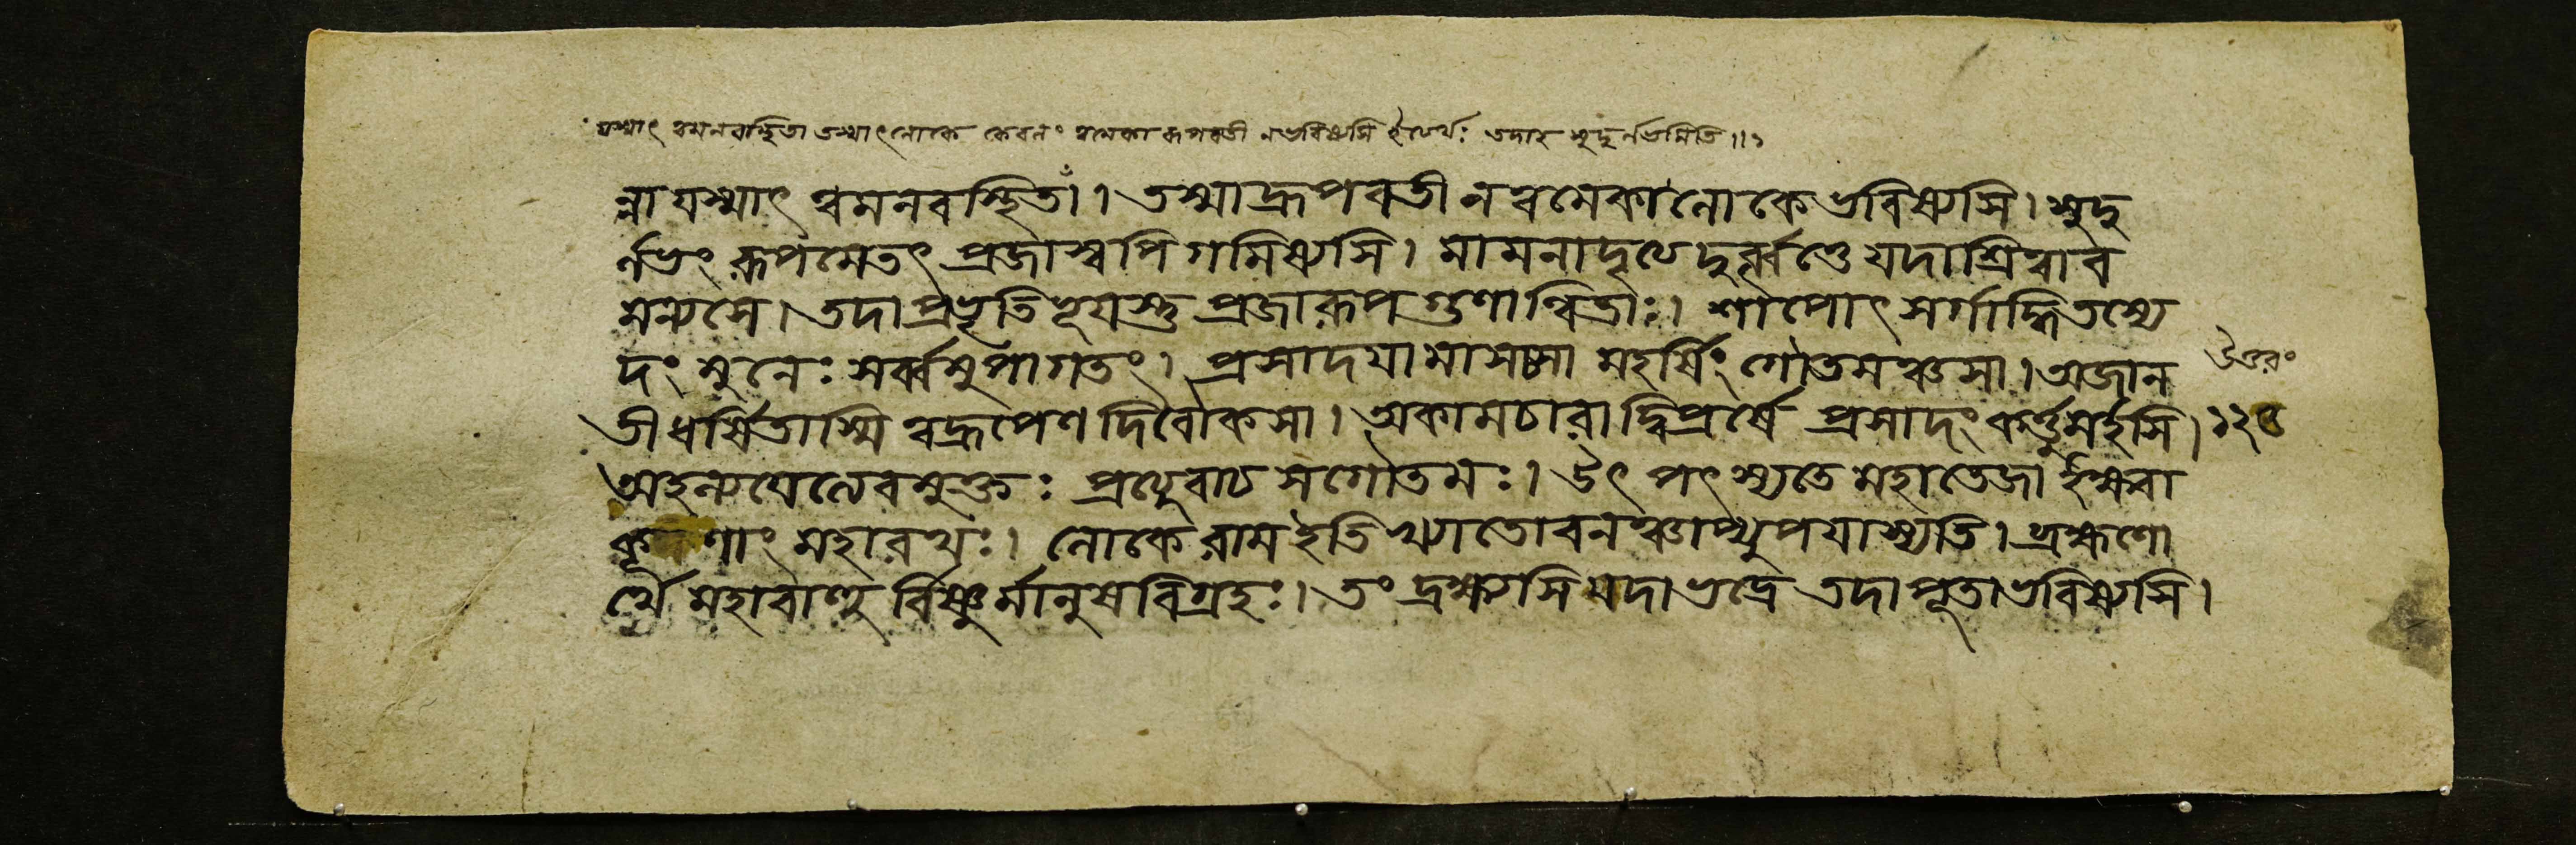 যস্মাৎ ত্বমনবস্থিতা তস্মাৎ লোকে কেবলং ত্বমেকা রূপবতী ন ভবিষ্যসি ইত্যর্থঃ তদাহ সুদুর্লভমিতি॥১
ন্না যস্মাৎ ত্বমনবস্থিতা। তস্মাদ্রূপবতী ন ত্বমেকা লোকে ভবিষ্যসি। সুদু
র্লভং রূপমেতৎ প্রজাস্বপি গমিষ্যসি। মামনাদৃত্য দুর্ব্বৃত্তে যদাশ্রিত্বাব
মন্যসে। তদাপ্রভৃতি ভূযস্তু প্রজা রূপগুণান্বিতাঃ। শাপোৎসর্গাদ্ধি তস্যে
দং মুনেঃ সর্ব্বমুপাগতং। প্রসাদযামাস চ সা মহর্ষিং গৌতমঞ্চ সা। অজান
উত্তরং
তী ধর্ষিতাস্মি ত্বদ্রূপেণ দিবৌকসা। অকামচারাদ্বিপ্রর্ষে প্রসাদং কর্ত্তুমর্হসি।
অহল্যযেত্যেবমুক্তঃ প্রত্যুবাচ স গৌতমঃ। উৎপৎস্যতে মহাতেজা ইক্ষ্বা
কূণাং মহারথঃ। লোকে রাম ইতি খ্যাতো বনঞ্চাপ্যুপযাস্যতি। ব্রহ্মণো
র্থে মহাবাহু র্বিষ্ণুর্মানুষবিগ্রহঃ। তং দ্রক্ষ্যসি যদা ভদ্রে তদা পূতা ভবিষ্যসি।